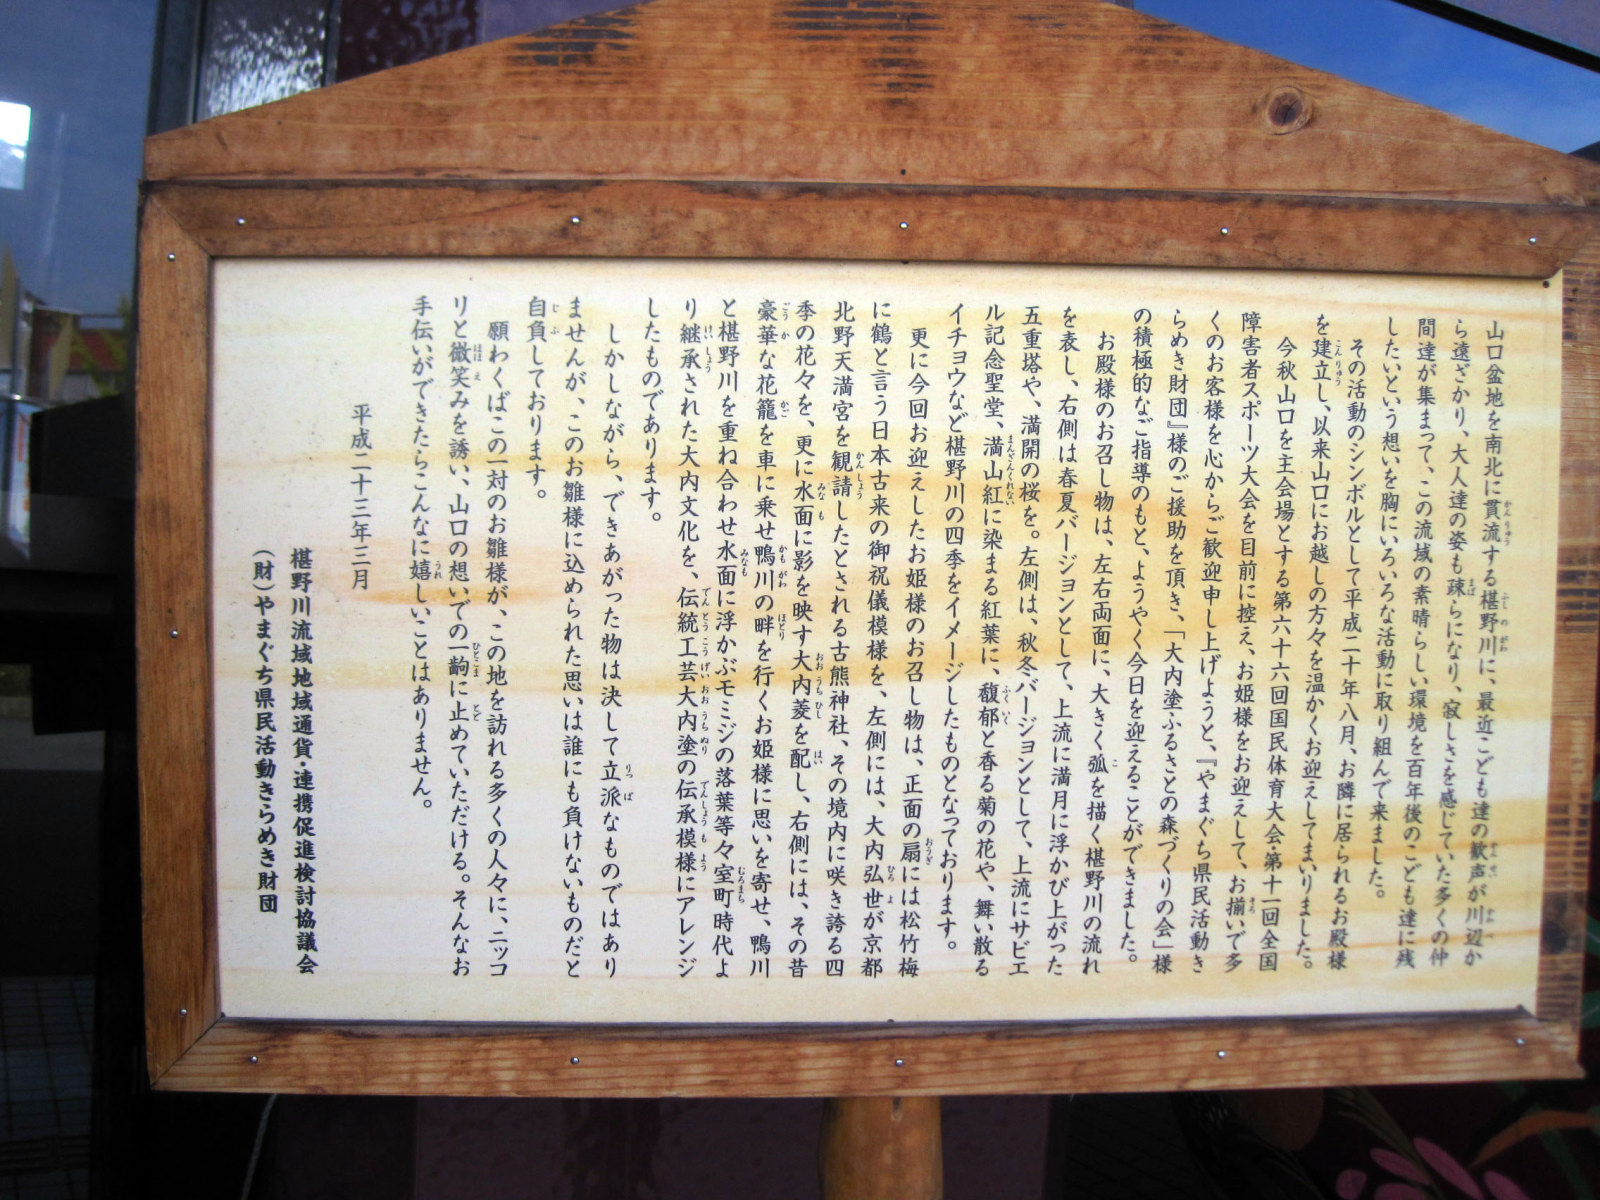 山口盆地を南北に貫流する椹野川に、最近こども達の歓声が川辺か
ら遠ざかり、大人達の姿も疎らになり、寂しさを感じていた多くの仲
間達が集まって、この流域の素晴らしい環境を百年後のこども達に残
したいという想いを胸にいろいろな活動に取り組んで来ました。
その活動のシンボルとして平成二十年八月、お隣に居られるお殿様
を建立し、以来山口にお越しの方々を温かくお迎えしてまいりました。
今秋山口を主会場とする第六十六回国民体育大会・第十一回全国
障害者スポーツ大会を目前に控え、お姫様をお迎えして、お揃いで多
くのお客様を心からご歓迎申し上げようと、『やまぐち県民活動き
らめき財団』様のご援助を頂き、「大内塗ふるさとの森づくりの会」様
の積極的なご指導のもと、ようやく今日を迎えることができました。
お殿様のお召し物は、左右両面に、大きく弧を描く椹野川の流れ
を表し、右側は春夏バージョンとして、上流に満月に浮かび上がった
五重塔や、満開の桜を。左側は、秋冬バージョンとして、上流にサビエ
ル記念聖堂、満山紅に染まる紅葉に、馥郁と香る菊の花や、舞い散る
イチョウなど椹野川の四季をイメージしたものとなっております。
更に今回お迎えしたお姫様のお召し物は、正面の扇には松竹梅
に鶴と言う日本古来の御祝儀模様を、左側には、大内弘世が京都
北野天満宮を観請したとされる古熊神社、その境内に咲き誇る四
季の花々を、更に水面に影を映す大内菱を配し、右側には、その昔
豪華な花籠を車に乗せ鴨川の畔を行くお姫様に思いを寄せ、鴨川
と椹野川を重ね合わせ水面に浮かぶモミジの落葉等々室町時代よ
り継承された大内文化を、伝統工芸大内塗の伝承模様にアレンジ
したものであります。
しかしながら、できあがった物は決して立派なものではあり
ませんが、このお雛様に込められた思いは誰にも負けないものだと
自負しております。
願わくばこの一対のお雛様が、この地を訪れる多くの人々に、ニッコ
リと微笑みを誘い、山口の想いでの一齣に止めていただける。そんなお
手伝いができたらこんなに嬉しいことはありません。
平成二十三年三月
椹野川流域地域通貨・連携促進検討協議会
(財)やまぐち県民活動きらめき財団